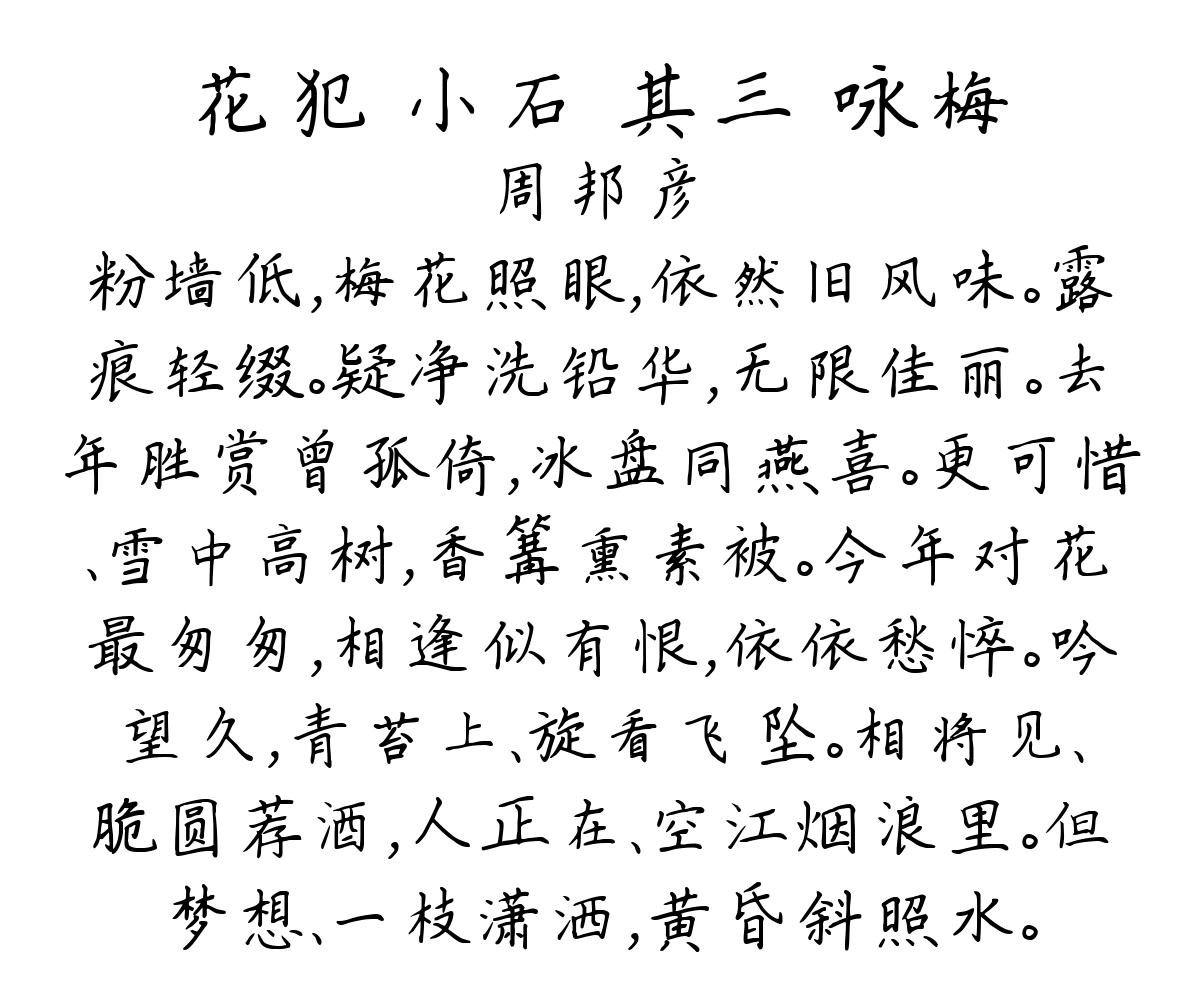 花犯 小石 其三 咏梅
周邦彦
粉墙低,梅花照眼,依然旧风味。露
痕轻缀。疑净洗铅华,无限佳丽。去
年胜赏曾孤倚,冰盘同燕喜。更可惜
、雪中高树,香篝熏素被。今年对花
最匆匆,相逢似有恨,依依愁悴。吟
望久,青苔上、旋看飞坠。相将见、
脆圆荐酒,人正在、空江烟浪里。但
梦想、一枝潇洒,黄昏斜照水。